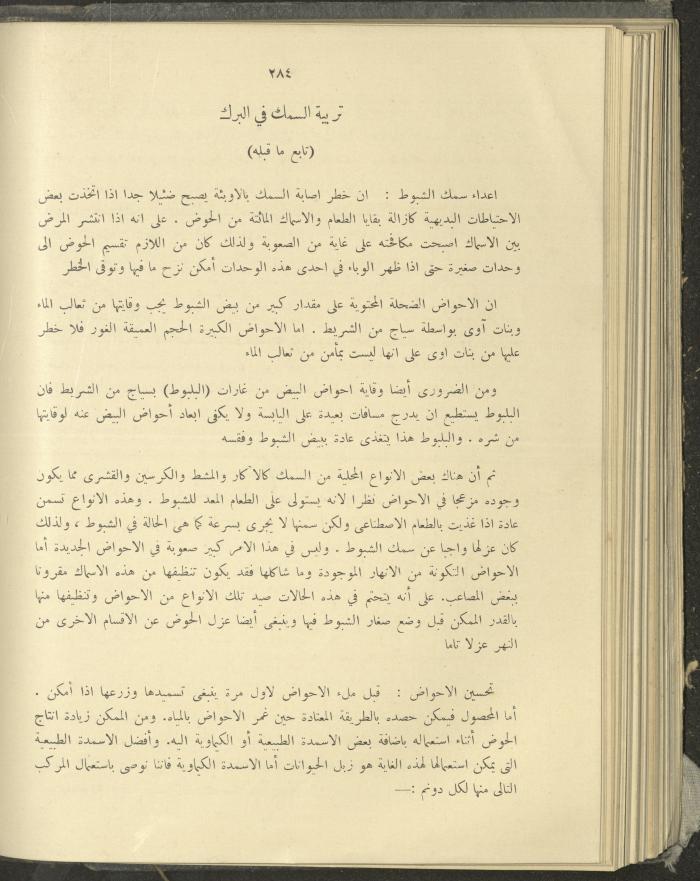 ٢٨٤
تربية السمك في البرك
(تابع ما قبله)
اعداء سمك الشبوط : ان خطر اصابة السمك بالاوبئة يصبح ضئيلا جدا اذا اتخذت بعض
الاحتياطات البديهية كازالة بقايا الطعام والاسماك المائتة من الحوض . على انه اذا انتشر المرض
بين الاسماك اصبحت مكافحته على غاية من الصعوبة ولذلك كان من اللازم تقسيم الحوض الى
وحدات صغيرة حتى اذا ظهر الوباء في احدى هذه الوحدات أمكن نزح ما فيها وتوقى الخطر
ان الاحواض الضحلة المحتوية على مقدار كبير من بيض الشبوط يجب وقايتها من ثعالب الماء
وبنات آوى بواسطة سياج من الشريط . اما الاحواض الكبيرة الحجم العميقة الغور فلا خطر
عليها من بنات اوى على انها ليست بمأمن من ثعالب الماء
ومن الضرورى أيضا وقاية احواض البيض من غارات (البلبوط) بسياج من الشريط فان
البلبوط يستطيع ان يدرج مسافات بعيدة على اليابسة ولا يكفى ابعاد أحواض البيض عنه لوقايتها
من شره . والبلبوط هذا يتغذى عادة ببيض الشبوط وفقسه
ثم أن هناك بعض الانواع المحلية من السمك كالاكار والمشط والكرسين والقشرى مما يكون
وجوده مزعجا في الاحواض نظرا لانه يستولى على الطعام المعد للشبوط . وهذه الانواع تسمن
عادة اذا غذيت بالطعام الاصطناعى ولكن سمنها لا يجرى بسرعة كما هى الحالة في الشبوط ، ولذلك
كان عزلها واجبا عن سمك الشبوط . وليس في هذا الامر كبير صعوبة في الاحواض الجديدة أما
الاحواض التكونة من الانهار الموجودة وما شاكلها فقد يكون تنظيفها من هذه الاسماك مقرونا
ببعض المصاعب. على أنه يتحتم في هذه الحالات صيد تلك الانواع من الاحواض وتنظيفها منها
بالقدر الممكن قبل وضع صغار الشبوط فيها وينبغى أيضا عزل الحوض عن الاقسام الاخرى من
النهر عزلا تاما
تحسين الاحواض : قبل ملء الاحواض لاول مرة ينبغى تسميدها وزرعها اذا أمكن .
أما المحصول فيمكن حصده بالطريقة المعتادة حين غمر الاحواض بالمياه. ومن الممكن زيادة انتاج
الحوض أثناء استعماله باضافة بعض الاسمدة الطبيعية أو الكيماوية اليه. وأفضل الاسمدة الطبيعية
التى يمكن استعمالها لهذه الغاية هو زبل الحيوانات أما الاسمدة الكيماوية فاننا نوصى باستعمال المركب
التالى منها لكل دونم :—